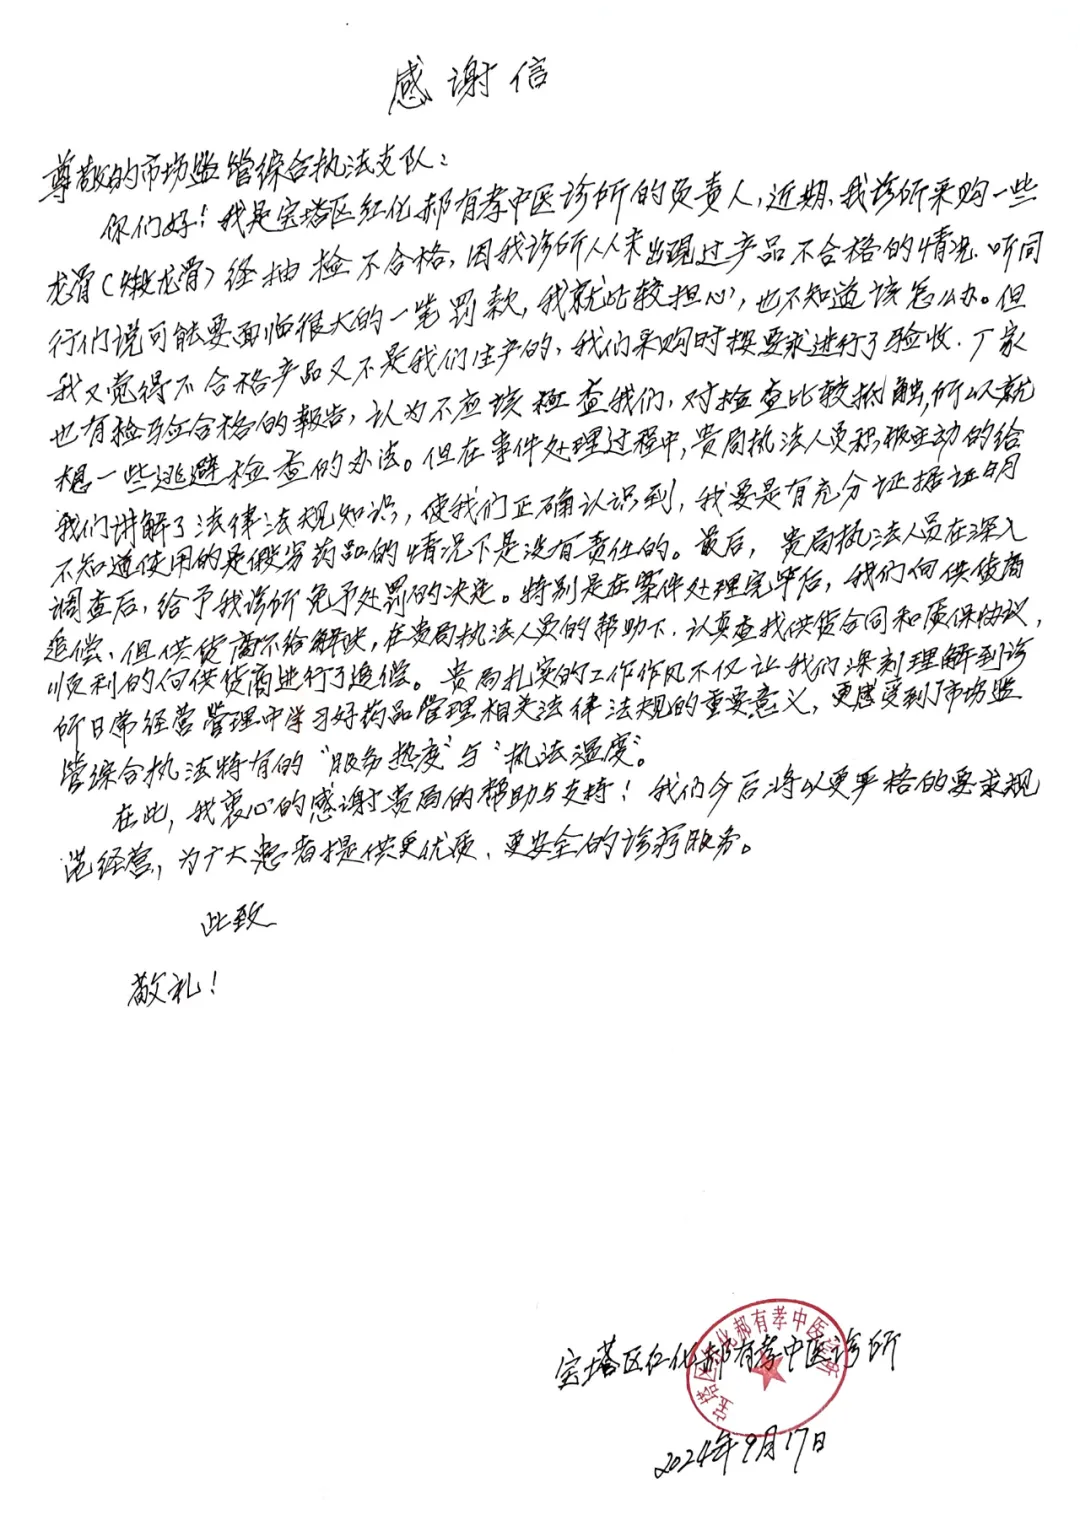 感谢信
尊敬的市场监管综合执法支队：
你们好！我是宝塔区红化郝有孝中医诊所的负责人，近期，我诊所采购一些
龙骨（煅龙骨）经抽检不合格，因我诊所从未出现过产品不合格的情况，听同
行们说可能要面临很大的一笔罚款，我就比较担心，也不知道该怎么办。但
我又觉得不合格产品又不是我们生产的，我们采购时按要求进行了验收，厂家
也有检验合格的报告，认为不应该检查我们，对检查比较抵触，所以就
想一些逃避检查的办法。但在事件处理过程中，贵局执法人员积极主动的给
我们讲解了法律法规知识，使我们正确认识到，我要是有充分证据证明
不知道使用的是假劣药品的情况下是没有责任的。最后，贵局执法人员在深入
调查后，给予我诊所免予处罚的决定。特别是在案件处理完毕后，我们向供货商
追偿、但供货商不给解决，在贵局执法人员的帮助下，认真查找供货合同和质保协议，
顺利的向供货商进行了追偿。贵局扎实的工作作风不仅让我们深刻理解到诊
所日常经营管理中学习好药品管理相关法律法规的重要意义，更感受到了市场监
管综合执法特有的“服务热度”与“执法温度”。
在此，我衷心的感谢贵局的帮助与支持！我们今后将以更严格的要求规
范经营，为广大患者提供更优质、更安全的诊疗服务。
此致
敬礼！
宝塔区红化郝有孝中医诊所
宝塔区红化郝有孝中医诊所
2024年9月17日